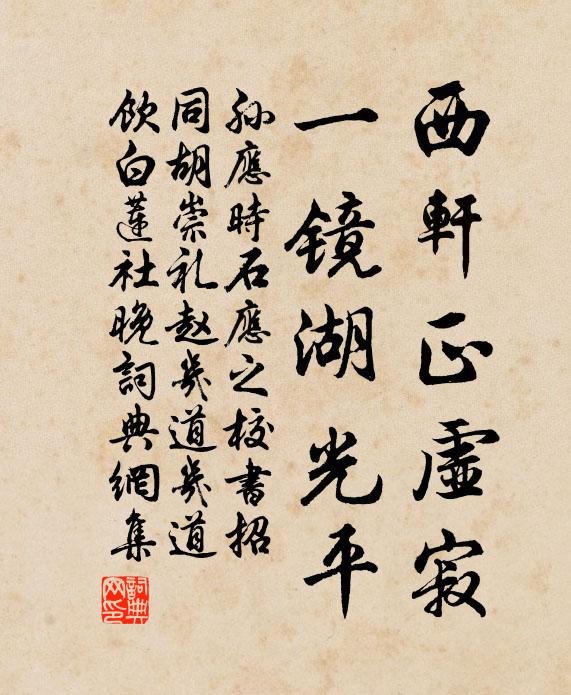 西軒正虛寂
一镜湖光平
孙應時石應之校書招
同胡崇礼赵幾道幾道
飲白蓮社晚詞典網集
詞典
网印